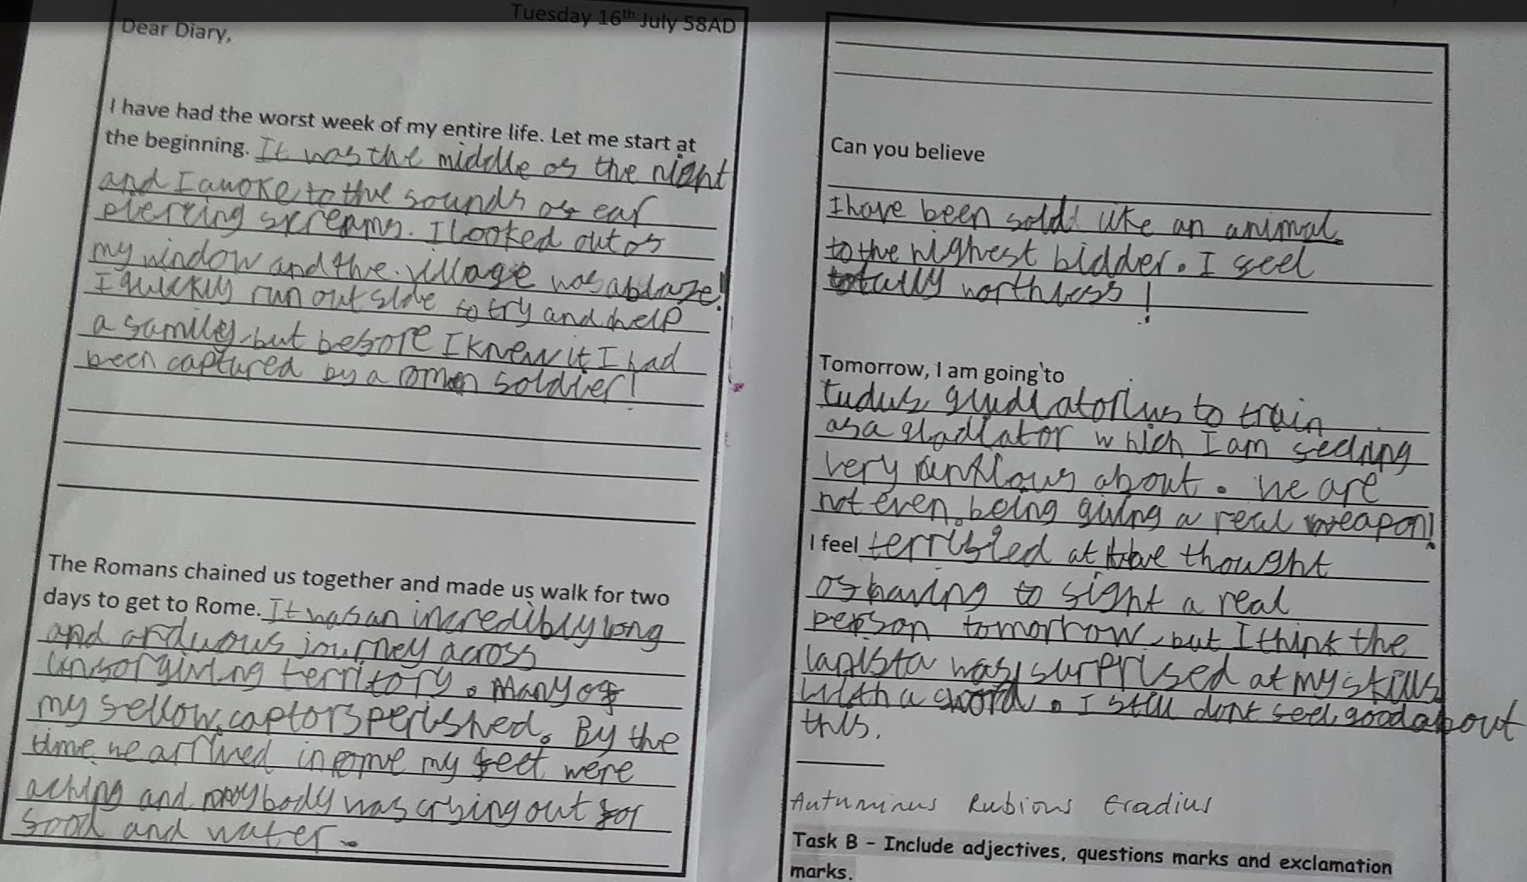 Tuesday 16th July 58AD
Dear Diary,
I have had the worst week of my entire life. Let me start at
the beginning. It was the middle of the night
and I awoke to the sounds of ear
piercing screams. I looked out of
my window and the village was ablaze!
I quickly run outside to try and help
a family but before I knew it I had
been captured by a roman soldier!
The Romans chained us together and made us walk for two
days to get to Rome. It was an incredibly long
and arduous journey across
unforgiving territory. Many of
my fellow captors perished. By the
time we arrived in rome my feet were
aching and my body was crying out for
food and water.
Can you believe
I have been sold like an animal
to the highest bidder. I feel
totally worthless!
Tomorrow, I am going to
Ludus gladiatorius to train
as a gladiator which I am feeling
very anxious about. We are
not even being giving a real weapon!
I feel terrified at the thought
of having to fight a real
person tomorrow, but I think the
lanista was surprised at my skills
with a sword. I still dont feel good about
this.
Autuminus Rubious Eradius
Task B – Include adjectives, questions marks and exclamation
marks.